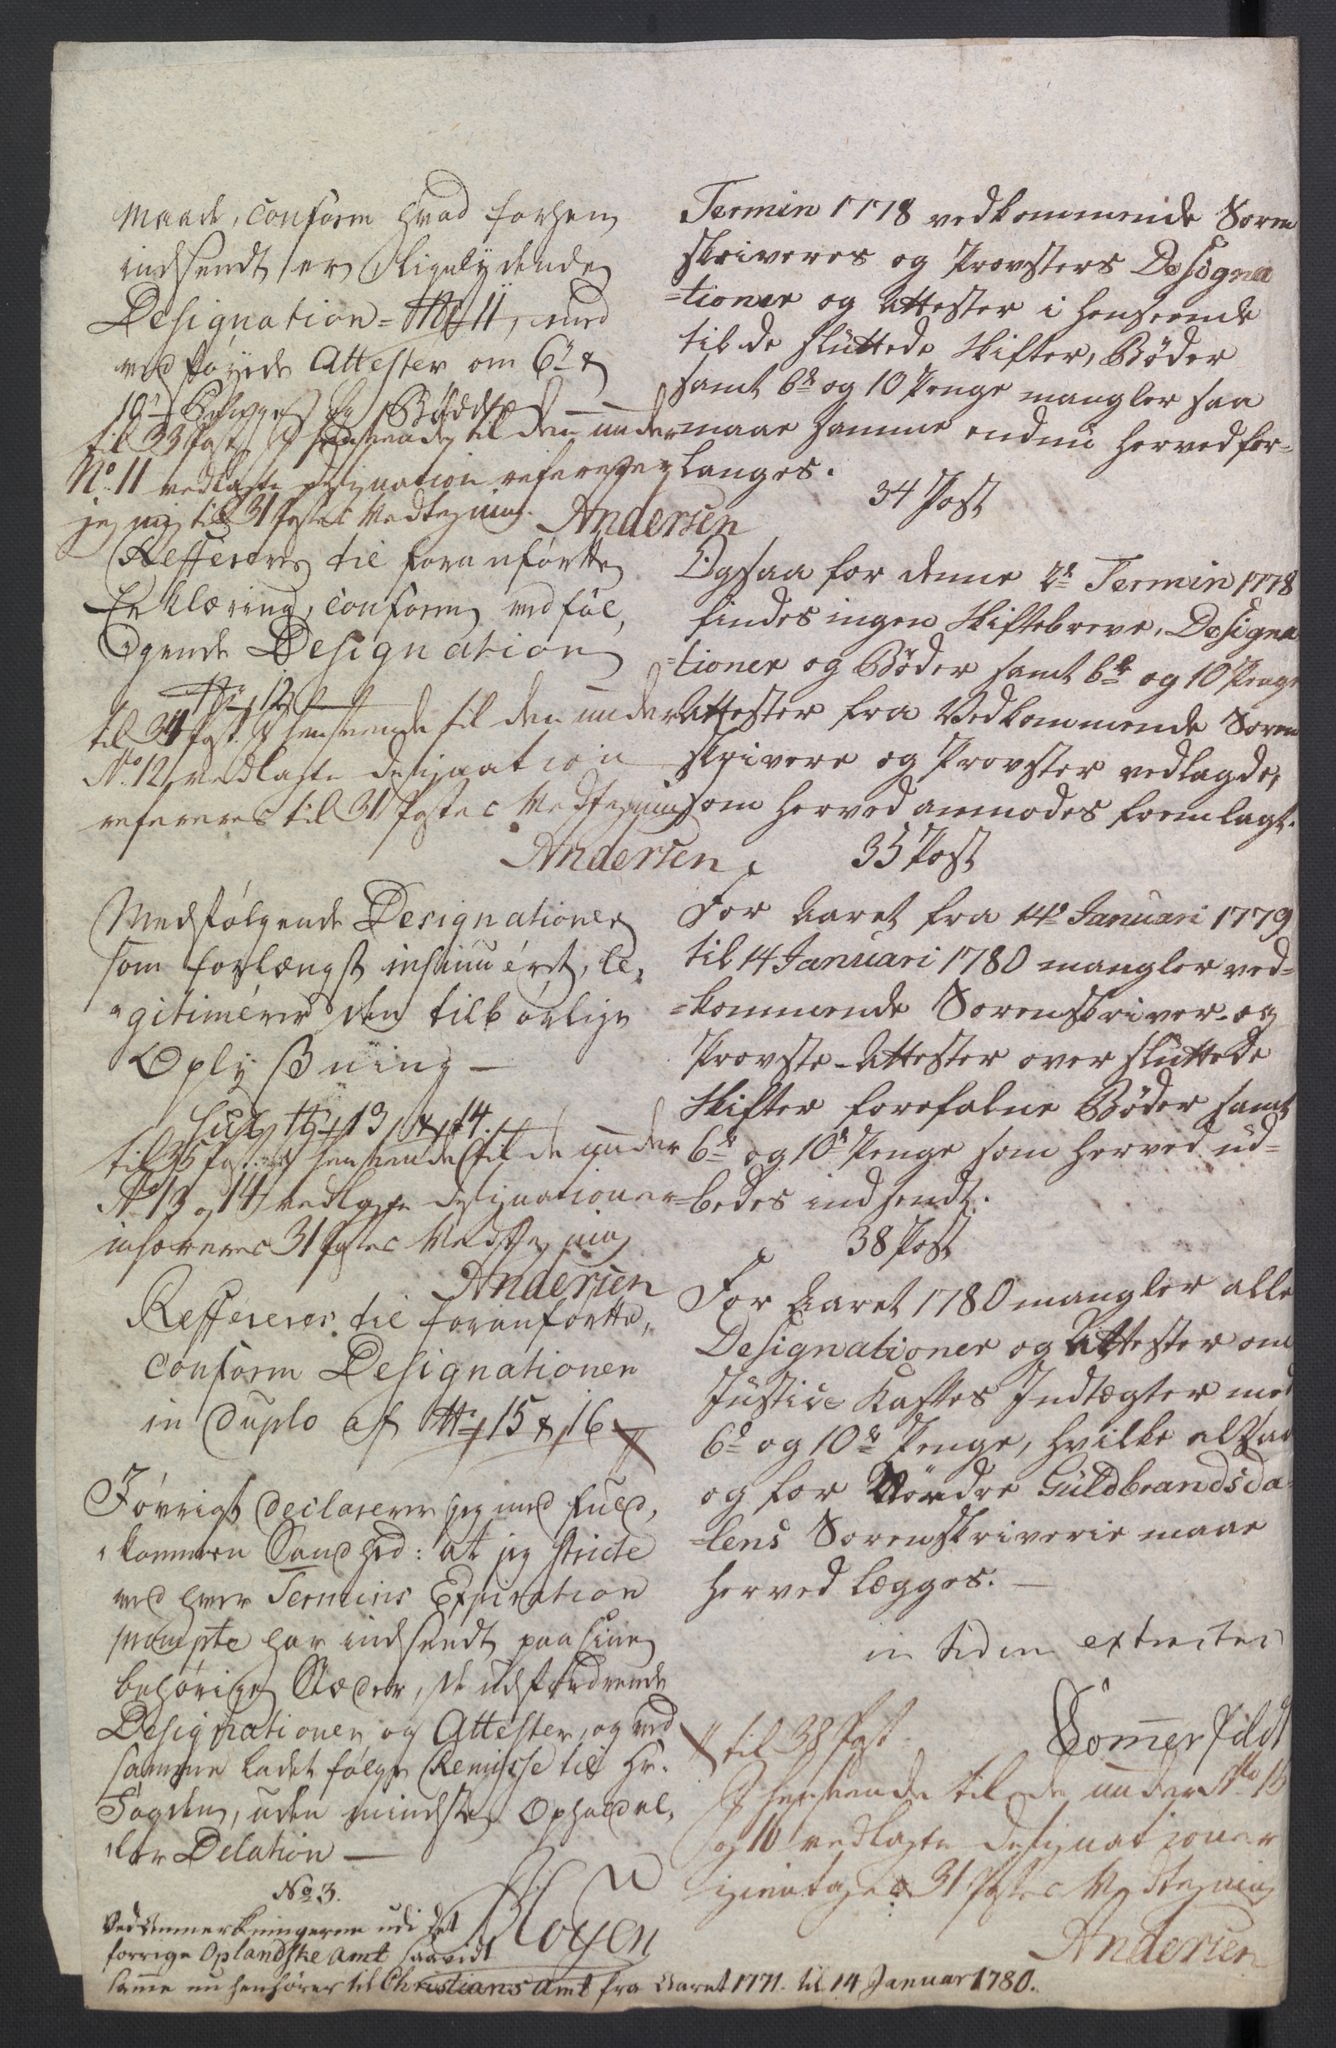 Maade, conform hvad forhen
indsendt er, Ligelydende
Designation = No 11, med
vedføyede Attester om 6te &
10de Penge og Bøder
til 33 Post I henseende til den under
No. 11 vedlagte designation refererer
jeg mig til 31 Postes Vedtegning.
Andersen
Refferere til foranførtte
Erklæring, conform vedføl,
gende Designation
No 12
til 34 Post I henseende til den under
No. 12 vedlagte designation
refereres til 31 Postes Vedtegning
Andersen
Medfølgende Designationer
som forlængst insinuéret, le,
gitimérer den tilbørlige
Oplysning —
sub No 13 & 14.
til 35 Post I henseende til de under
No 13 og 14 vedlagte designationer
31 Postes Vedtegning
Andersen
Reffererer til foranførtte,
conform Designationen
in duplo af No 15 & 16
Iøvrigt declarerer jeg med fuld,
kommen Sandhed: at jeg stricte
ved hver Termins Expiration
prompte har indsendt paa sine
behørige Stæder, de udfordrende
Designationer og Attester, og med
samme ladet følge Remisse til Hr.
Fogden, uden mindste Ophold el,
ler Delation —
Høyen
No 3.
Ved Anmerkningerne udi det
forrige Oplandske Amt saavidt
samme nu henhører til Christians Amt fra Aaret 1771. til 14 Januar 1780.
Termin 1778 vedkommende Soren
skriveres og Provsters Designa
=tioner og Attester i henseende
til de sluttede Skifter, Bøder
samt 6te og 10 Penge mangler saa
maae samme endnu herved for-
langes.
34 Post
Ogsaa for denne 2de Termin 1778
findes ingen Skiftebreve, Designa
=tioner og Bøder samt 6te og 10 Penge
Attester fra Vedkommende Soren
skrivere og Provster vedlagde,
som herved anmodes fremlagt.
35 Post
For Aaret fra 14de Januari 1779
til 14 Januari 1780 mangler ved=
=kommende Sorenskriver- og
Provste-Attester over sluttede
Skifter forefalne Bøder samt
6te og 10de Penge som herved ud=
=bedes indsendt.
38 Post
For Aaret 1780 mangler alle
Designationer og Attester om
Justice Kasses Indtægter med
6te og 10de Penge, hvilke altsaa
og for Nordre Guldbrandsda=
=lens Sorenskriverie maae
herved lægges. —
in fidem extractus
Sommerfeldt
til 38 Post
I henseende til de under No 15
og 16 vedlagte designationer
igientages 31 Postes Vedtegning
Andersen